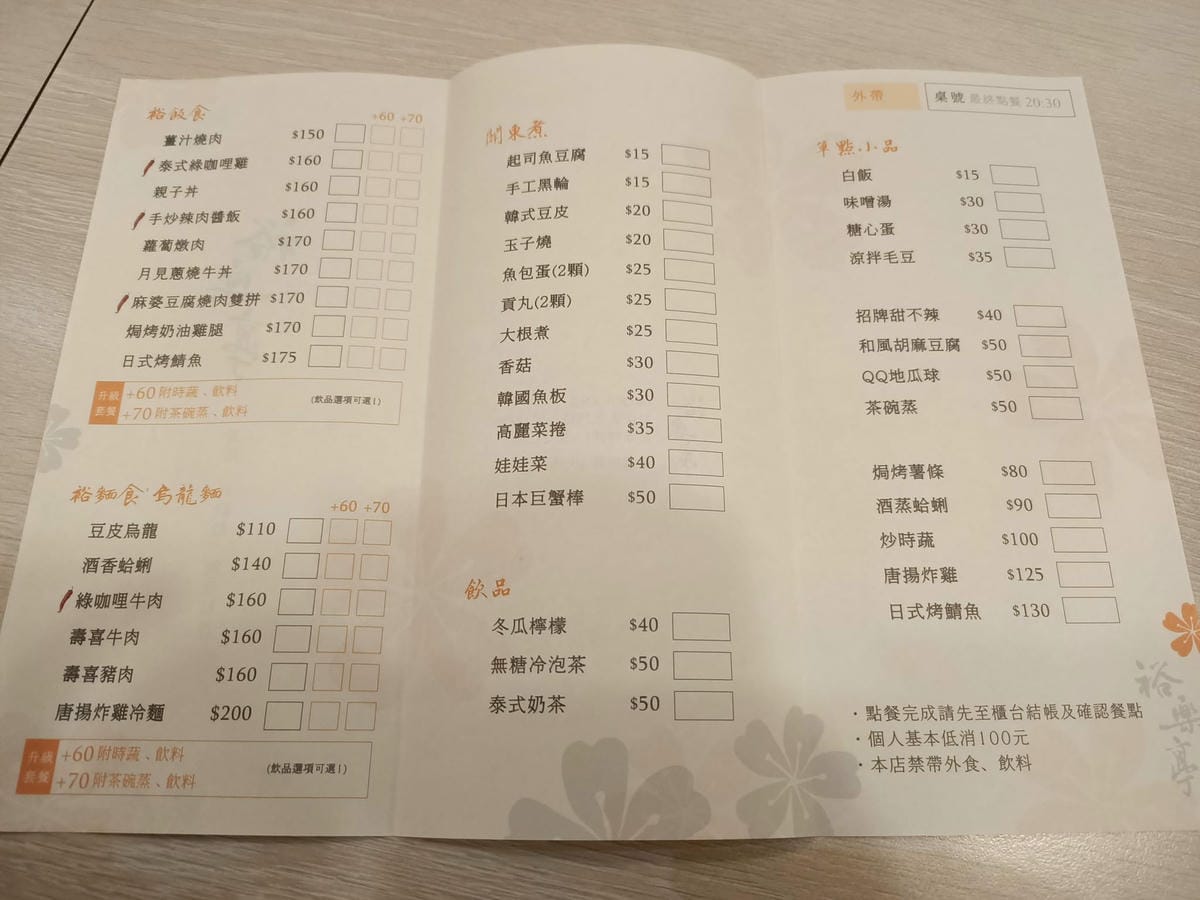 裕飯食
+60 +70
薑汁燒肉 $150
泰式綠咖哩雞 $160
親子丼 $160
手炒辣肉醬飯 $160
蘿蔔燉肉 $170
月見蔥燒牛丼 $170
麻婆豆腐燒肉雙拼 $170
焗烤奶油雞腿 $170
日式烤鯖魚 $175
升級套餐
+60 附時蔬、飲料
+70 附茶碗蒸、飲料
(飲品選項可選!)
裕麵食 烏龍麵
+60 +70
豆皮烏龍 $110
酒香蛤蜊 $140
綠咖哩牛肉 $160
壽喜牛肉 $160
壽喜豬肉 $160
唐揚炸雞冷麵 $200
升級套餐
+60 附時蔬、飲料
+70 附茶碗蒸、飲料
(飲品選項可選!)
關東煮
起司魚豆腐 $15
手工黑輪 $15
韓式豆皮 $20
玉子燒 $20
魚包蛋(2顆) $25
貢丸(2顆) $25
大根煮 $25
香菇 $30
韓國魚板 $30
高麗菜捲 $35
娃娃菜 $40
日本巨蟹棒 $50
飲品
冬瓜檸檬 $40
無糖冷泡茶 $50
泰式奶茶 $50
外帶
桌號 最終點餐 20:30
單點小品
白飯 $15
味噌湯 $30
糖心蛋 $30
涼拌毛豆 $35
招牌甜不辣 $40
和風胡麻豆腐 $50
QQ地瓜球 $50
茶碗蒸 $50
焗烤薯條 $80
酒蒸蛤蜊 $90
炒時蔬 $100
唐揚炸雞 $125
日式烤鯖魚 $130
・點餐完成請先至櫃台結帳及確認餐點
・個人基本低消100元
・本店禁帶外食、飲料
裕樂亭